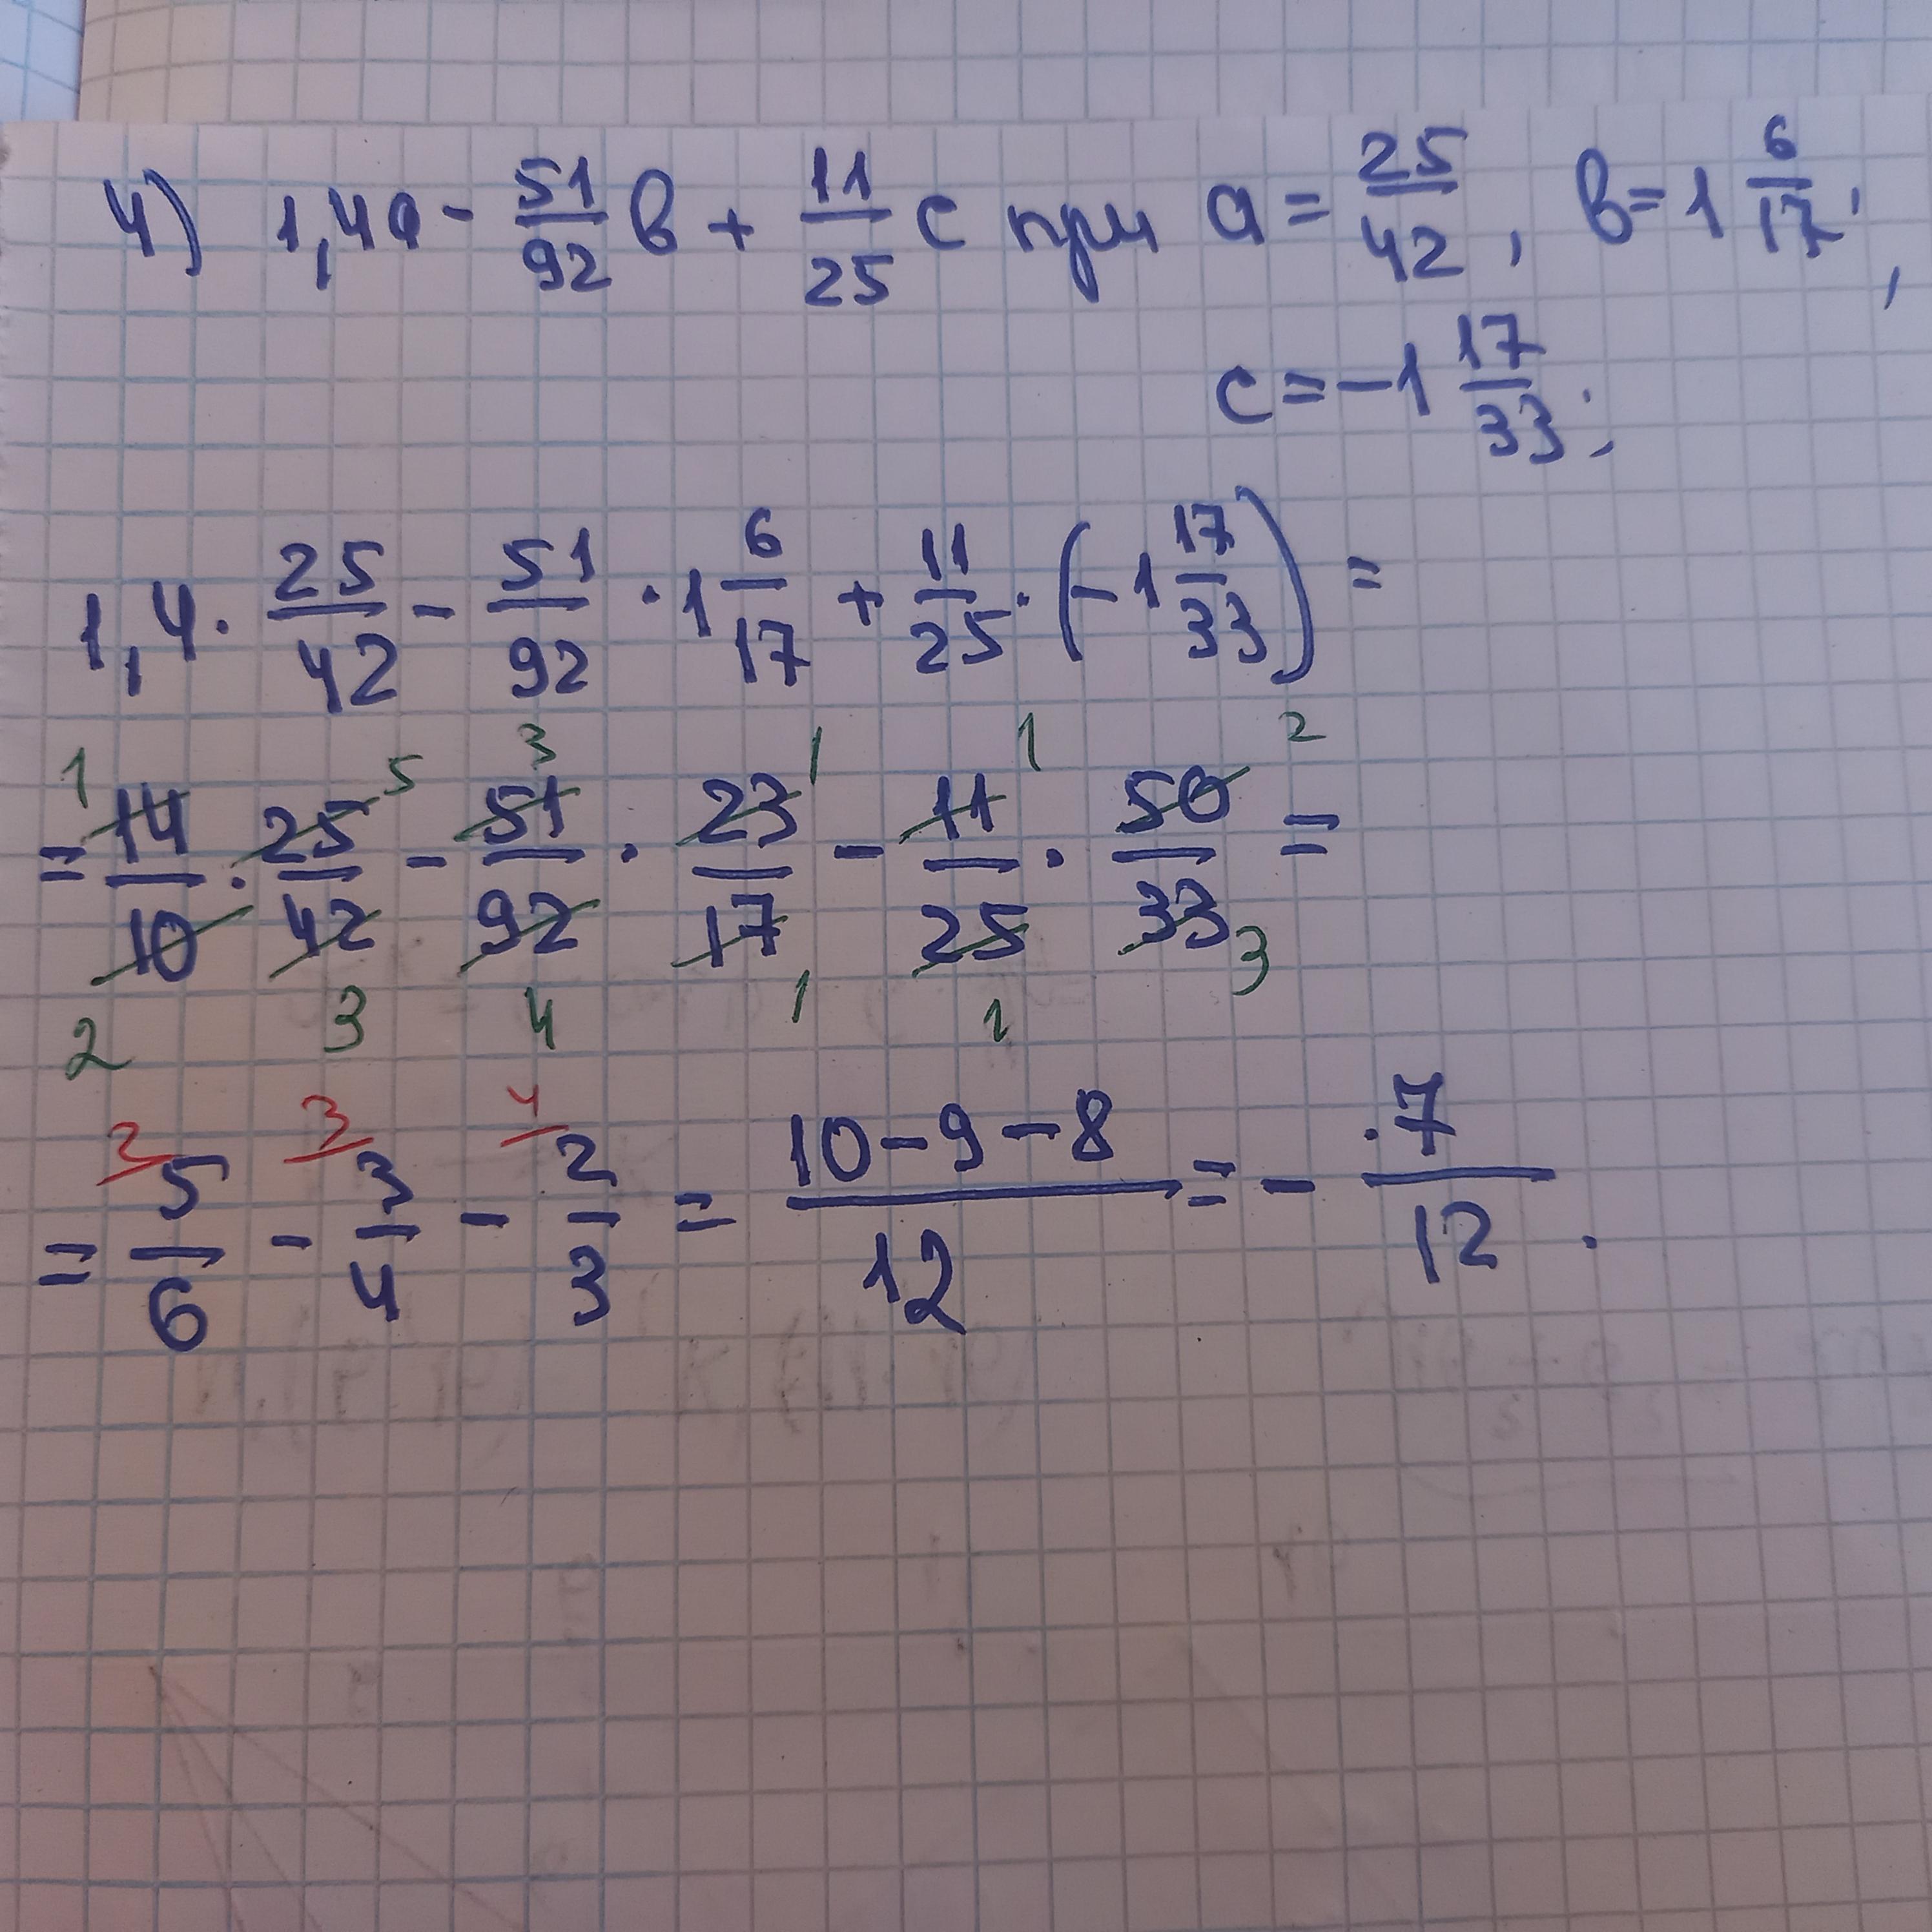 4) 1,4a - 51/92 в + 11/25 c при a = 25/42, в = 1 6/17,
c = -1 17/33;
1,4 · 25/42 - 51/92 · 1 6/17 + 11/25 · (-1 17/33) =
1 5 3 1 1 2
= 14/10 · 25/42 - 51/92 · 23/17 - 11/25 · 50/33 =
2 3 4 1 1 3
2 3 4
= 5/6 - 3/4 - 2/3 = 10-9-8/12 = - 7/12.